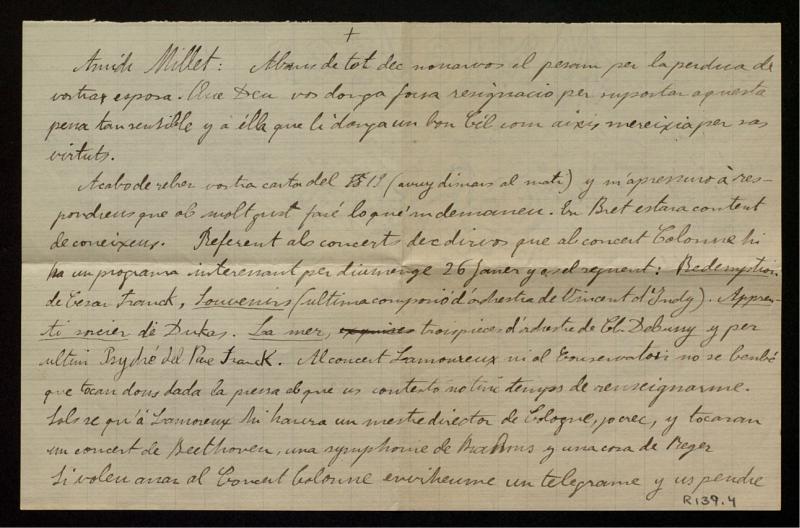 +
Amich Millet: Abans de tot dec nonarvos el pesam per la perdua de
vostra esposa. Que Deu vos donga forsa resignació per suportar aquesta
pena tan sensible y á élla que li donga un bon Cél com aixis mereixia per sas
virtuts.
Acabo de rebrer vostra carta del 19 (avuy dimars al matí) y m'apressuro à res-
pondreus que ab molt gust faré lo que'm demaneu. En Bret estara content
de coneixeus. Referent als concerts dec dirvos que al concert Colonne hi
ha un programa interessant per diumenge 26 Janer y es el seguent: Redemption
de César Franck, Souvenirs (ultima composió d'orchestra de Vincent d'Indy). Appren-
ti sorcier de Dukas. La mer, tres pieces d'orchestre de Cl. Debussy y per
ultim Psyché del Pare Franck. Al concert Lamoureux ni al Conservatori no se també
que tocan dons dada la pressa ab que us contesto no tinc temps de renseignarme.
Sols se qu'á Lamoreux hi haura un mestre director de Cologne, jo crec, y tocaran
un concert de Beethoven, una symphonie de Brahms y una cosa de Reger
Si voleu anar al Concert Colonne envieume un telegrame y us pendre
R139.4